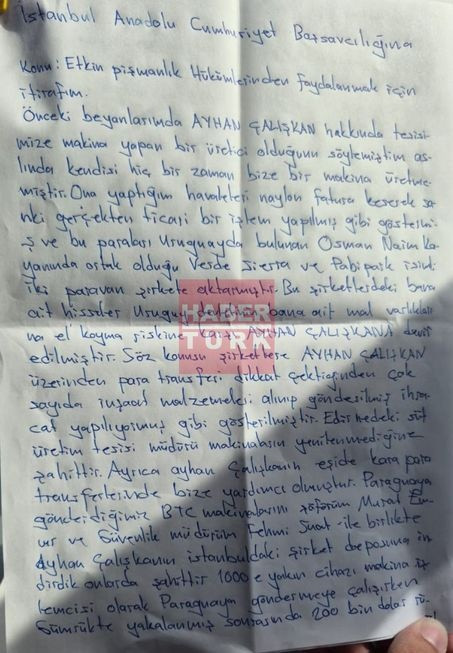 İstanbul Anadolu Cumhuriyet Başsavcılığına
Konu: Etkin pişmanlık Hükümlerinden faydalanmak için
itirafım.
Önceki beyanlarımda AYHAN ÇALIŞKAN hakkında tesisi-
mize makina yapan bir üretici olduğunu söylemiştim as-
lında kendisi hiç bir zaman bize bir makina üretme-
miştir. Ona yaptığım havaleleri naylon fatura keserek san
ki gerçekten ticari bir işlem yapılmış gibi göstermi-
ş ve bu paraları Uruguayda bulunan Osman Naim Ka
yanında ortak olduğu Verde Sierra ve isimli
iki paravan şirkete aktarmıştır. Bu şirketlerdeki bana
ait hisseler Uruguay bana ait mal varlıkları
na el koyma riskine karşı AYHAN ÇALIŞKANA devir
edilmiştir. Söz konusu şirketlere AYHAN ÇALIŞKAN
üzerinden para transferi dikkat çektiğinden çok
sayıda inşaat malzemeleri alınıp gönderilmiş ihra-
cat yapılıyormuş gibi gösterilmiştir. Edirnedeki süt
üretim tesisi müdürü makinaların yenilenmediğine
şahittir. Ayrıca ayhan Çalışkanın eşide kara para
transferlerinde bize yardımcı olmuştur. Paraguaya
gönderdiğimiz BTC makinalarını şoförüm Murat
ur ve Güvenlik müdürüm Fehmi Suat ile birlikte
Ayhan Çalışkanın istanbuldaki şirket deposuna in
dirdik onlarda şahittir 1000 e yakın cihazı makina iş
lemcisi olarak Paraguaya göndermeye çalışırken
Gümrükte yakalanmış sonrasında 200 bin dolar rü
HABER
TÜRK